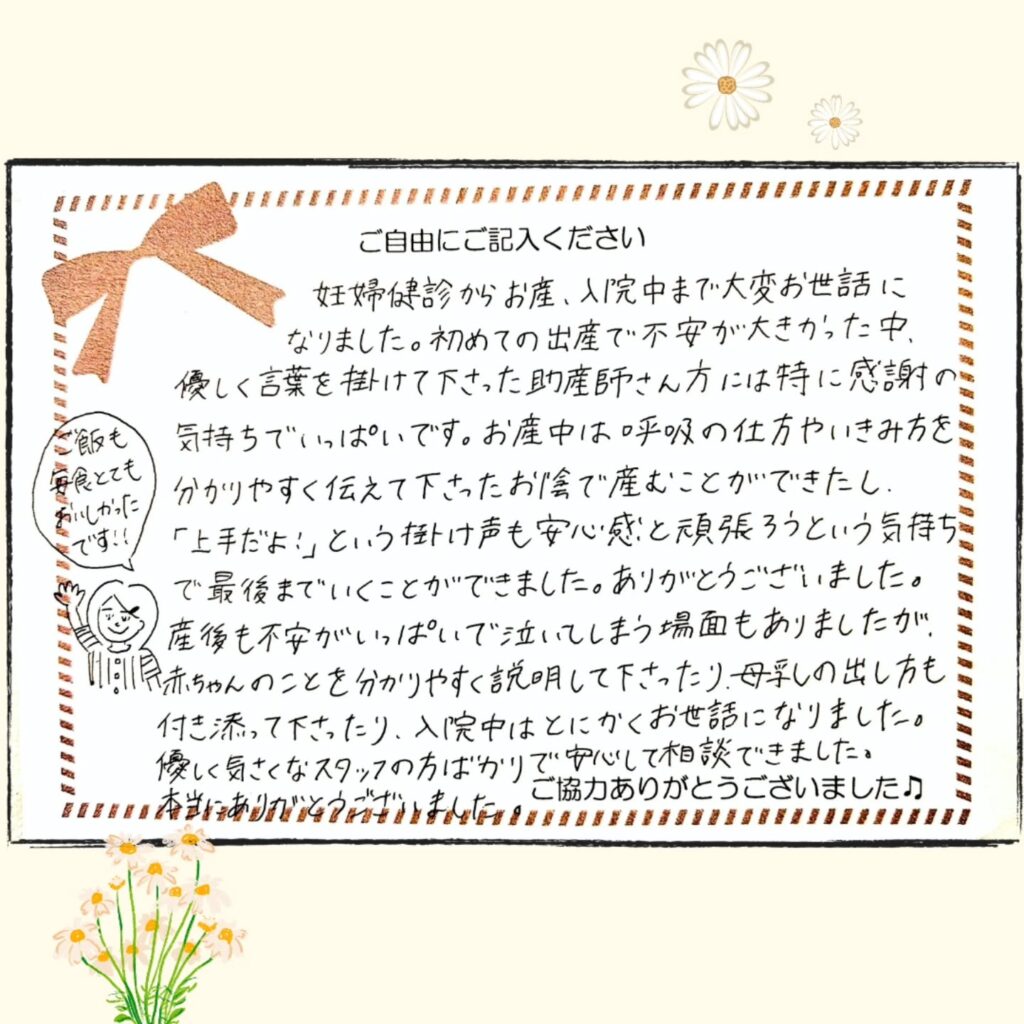 ご自由にご記入ください
妊婦健診からお産、入院中まで大変お世話に
なりました。初めての出産で不安が大きかった中、
優しく言葉を掛けて下さった助産師さん方には特に感謝の
気持ちでいっぱいです。お産中は呼吸の仕方やいきみ方を
分かりやすく伝えて下さったお陰で産むことができたし、
「上手だよ!」という掛け声も安心感と頑張ろうという気持ち
で最後までいくことができました。ありがとうございました。
産後も不安がいっぱいで泣いてしまう場面もありましたが、
赤ちゃんのことを分かりやすく説明して下さったり、母乳の出し方も
付き添って下さったり、入院中はとにかくお世話になりました。
優しく気さくなスタッフの方ばかりで安心して相談できました。
本当にありがとうございました。
ご協力ありがとうございました♫
ご飯も
安食とても
おいしかった
です!!